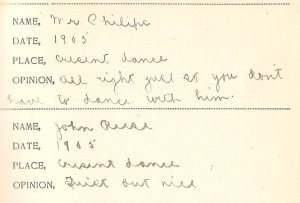 NAME, Mr Philips
DATE, 1905
PLACE, Cresent dance
OPINION, All right just so you don't
have to dance with him.
NAME, John Reese
DATE, 1905
PLACE, Cresent dance
OPINION, Quiet but nice